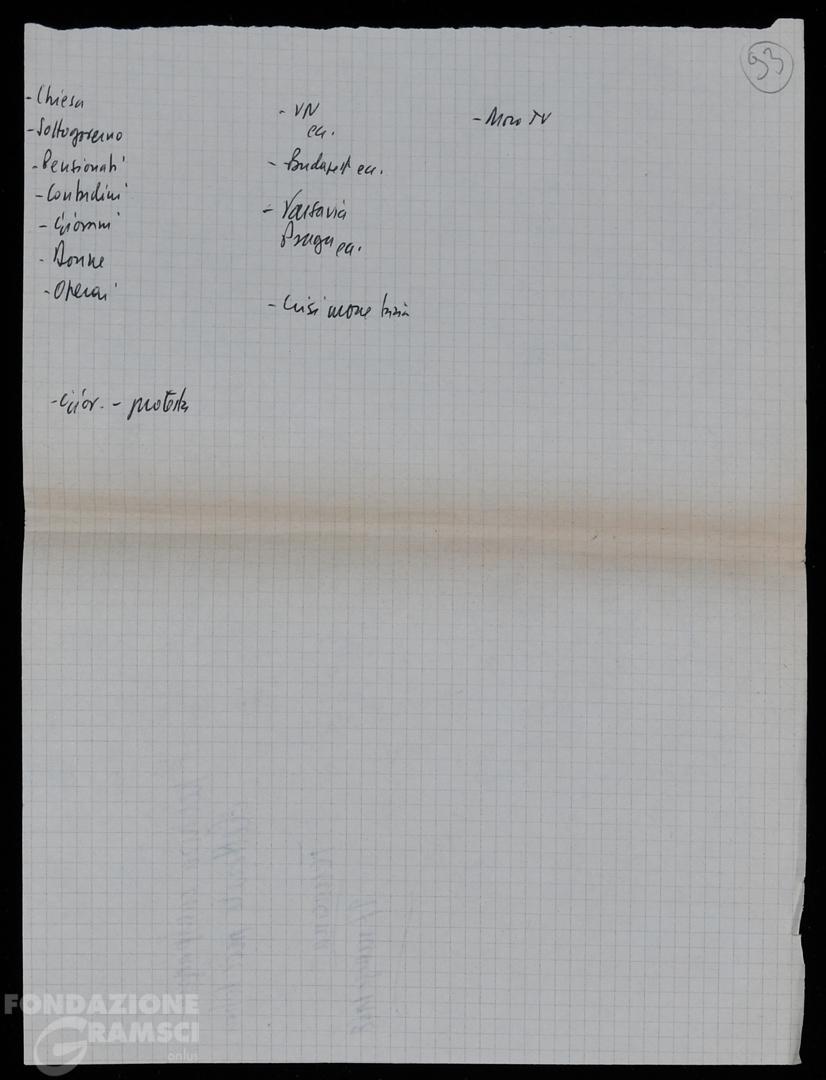 93
- Chiesa
- Sottogoverno
- Pensionati
- Contadini
- Giovani
- Donne
- Operai
- Gior. - protesta
- VN
ec.
- Budapest ec.
- Varsavia
Praga ec.
- Crisi monetaria
- Moro TV
FONDAZIONE
GRAMSCI
onlus